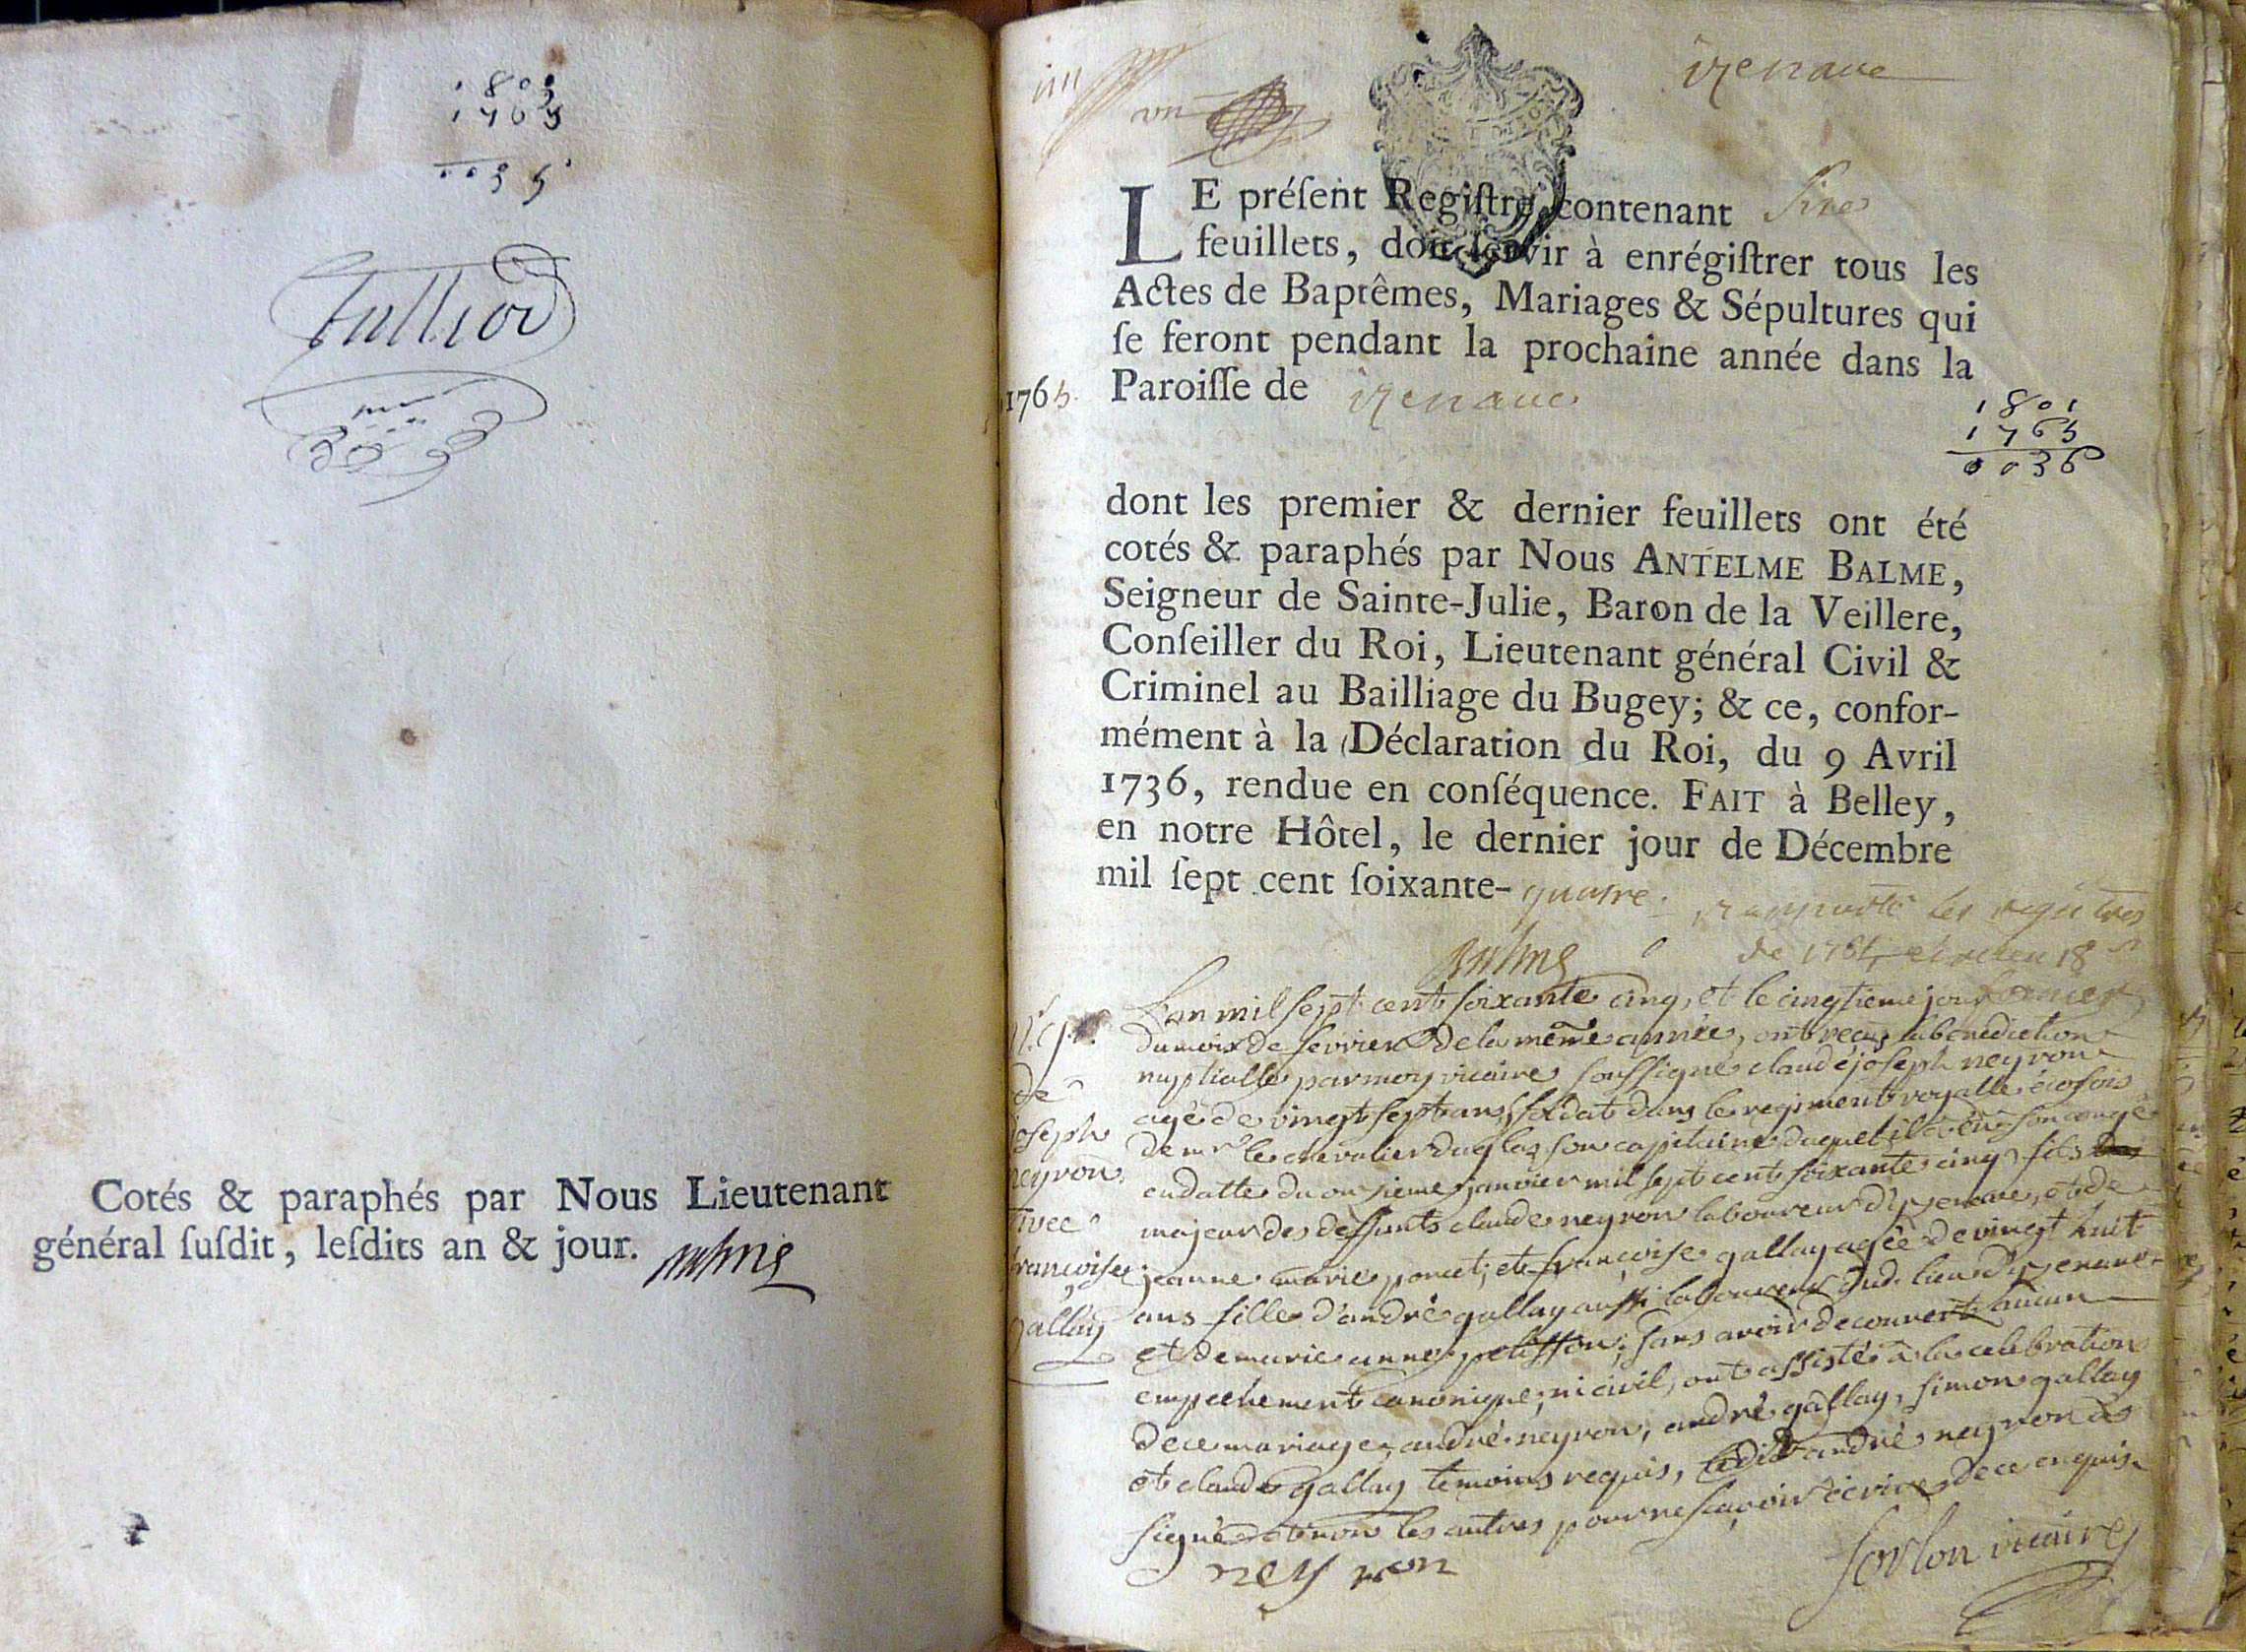 1801
1765
0036
Cotés & paraphés par Nous Lieutenant
général ſuſdit, leſdits an & jour. Balme
un
izenave
LE préſent Regiſtre contenant
feuillets, doit ſervir à enrégiſtrer tous les
Actes de Baptêmes, Mariages & Sépultures qui
ſe feront pendant la prochaine année dans la
1765. Paroiſſe de izenave
dont les premier & dernier feuillets ont été
cotés & paraphés par Nous ANTELME BALME,
Seigneur de Sainte-Julie, Baron de la Veillere,
Conſeiller du Roi, Lieutenant général Civil &
Criminel au Bailliage du Bugey; & ce, confor-
mément à la Déclaration du Roi, du 9 Avril
1736, rendue en conſéquence. FAIT à Belley,
en notre Hôtel, le dernier jour de Décembre
mil ſept cent ſoixante-quatre.
Balme
de
joseph
neyron
avec
francoise
gallay
L'an mil sept cent soixante cinq, et le cinqtieme jour
du mois de fevrier de la même année, ont reçu la benediction
nuptialle par moy vicaire soussigné claude joseph neyron
agé de vingt sept ans, soldat dans le regiment royalle écosois
de mr le chevalier duglas son capitaine duquel il a eu son congé
en datte du onzieme janvier mil sept cent soixante cinq, fils
majeur des deffunts claude neyron laboureur d'yzenave, et de
jeanne marie poncet; et francoise gallay agée de vingt huit
ans fille d'andré gallay aussi laboureur dud. lieu d'yzenave
et de marie anne pelisson; sans avoir decouvert aucun
empechement canonique, ni civil, ont assisté à la celebration
de ce mariage, andré neyron, andré gallay, simon gallay
et claude gallay temoins requis, ledit andré neyron a
signé et non les autres pour ne sçavoir écrire de ce enquis.
neyron
vicaire